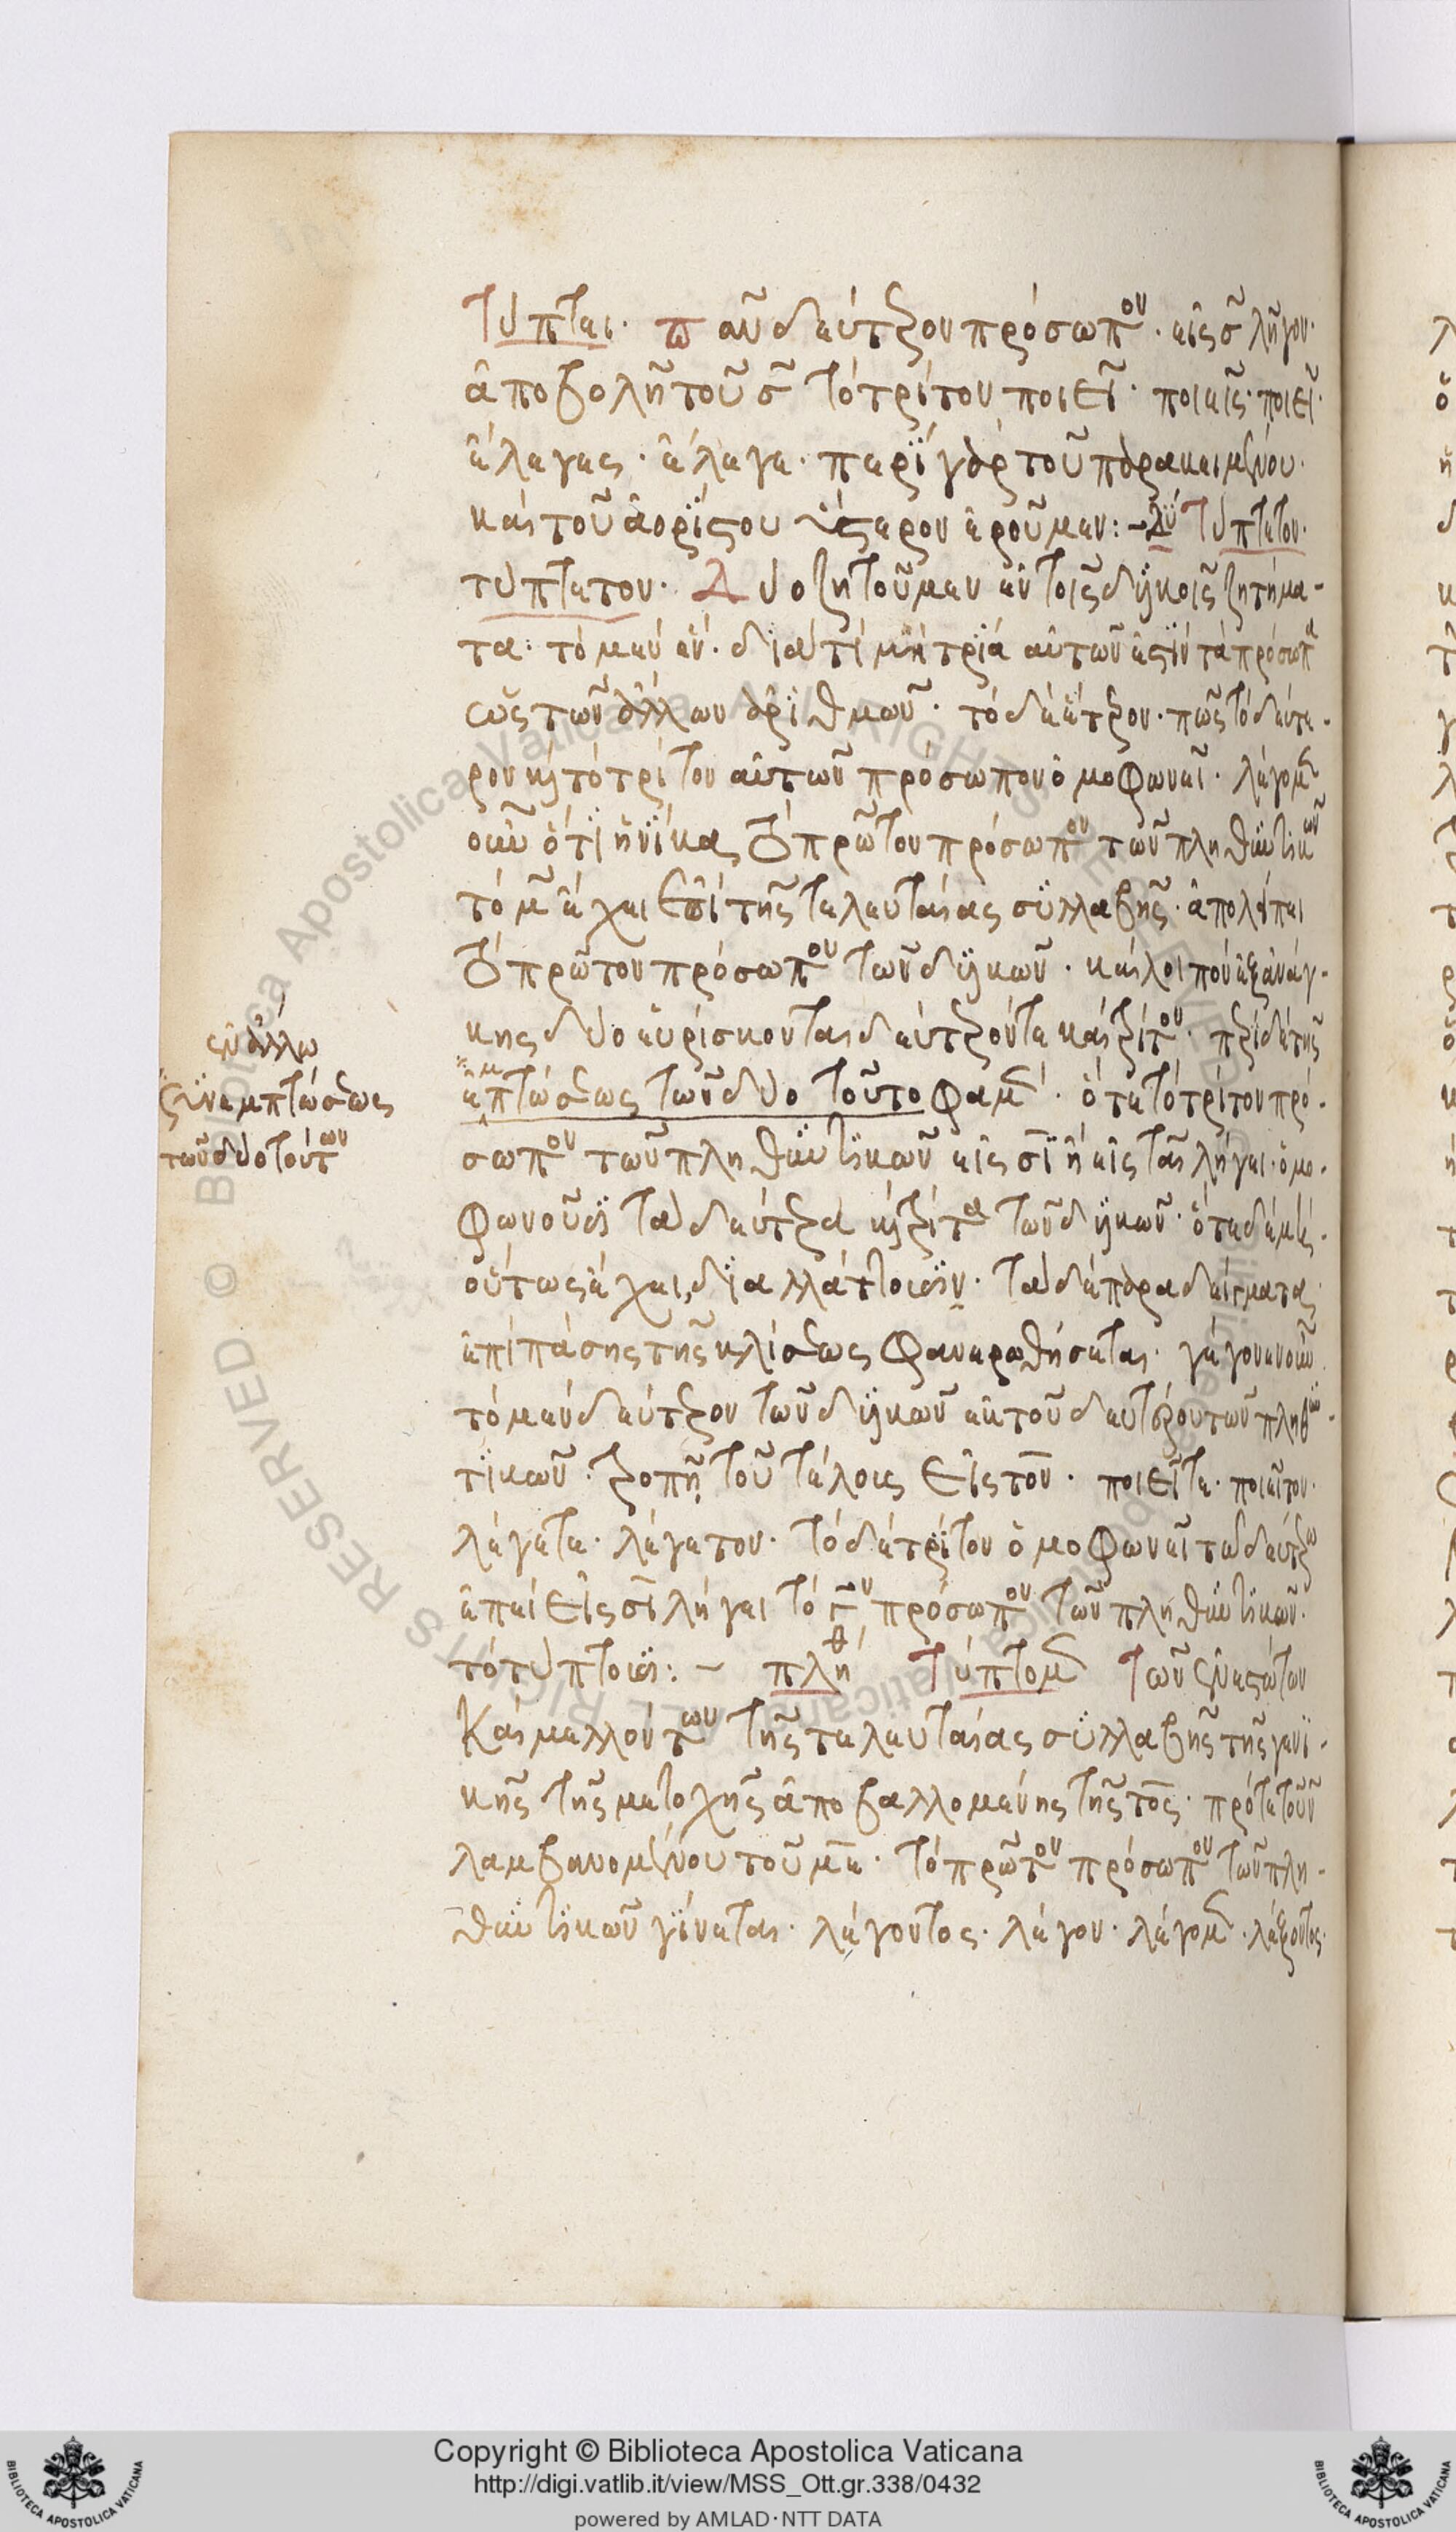 Τύπτει. πᾶν δεύτερον πρόσωπον. εἰς σ λῆγον.
ἀποβολῆ τοῦ σ τὸ τρίτον ποιεῖ. ποιεῖς. ποιεῖ.
ἔλεγες. ἔλεγε. περὶ γὰρ τοῦ παρακειμένου.
καὶ τοῦ ἀορίστου ὕστερον ἐροῦμεν:- δυ Τύπτετον.
τύπτετον. Δύο ζητοῦμεν ἐν τοῖς δυϊκοῖς ζητήμα-
τα: τὸ μὲν ἕν. διατί μὴ τρία αὐτῶν ἐστὶν τὰ πρόσωπα
ὡς τῶν ἄλλων ἀριθμῶν. τὸ δὲ ἕτερον. πῶς τὸ δεύτε-
ρον καὶ τὸ τρίτον αὐτῶν πρόσωπον ὁμοφωνεῖ. λέγομεν
οὖν ὅτι ἡνίκα τὸ πρῶτον πρόσωπον τῶν πληθυντικῶν
τὸ μ ἔχει ἐπὶ τῆς τελευταίας συλλαβῆς. ἀπολείπει
τὸ πρῶτον πρόσωπον τῶν δυϊκῶν. καὶ λοιπὸν ἐξ ἀνάγ-
κης δύο εὑρίσκονται δεύτερόν τε καὶ τρίτον. περὶ δὲ τῆς
ἐμπτώσεως τῶν δύο τοῦτο φαμέν. ὅτε τὸ τρίτον πρό-
σωπον τῶν πληθυντικῶν εἰς σι ἢ εἰς ται λήγει. ὁμο-
φωνοῦσι τὰ δεύτερα καὶ τρίτα τῶν δυϊκῶν. ὅτε δὲ μὴ
οὕτως ἔχει, διαλλάττουσιν. τὰ δὲ παραδείγματα
ἐπὶ πάσης τῆς κλίσεως φανερωθήσεται. γέγονεν οὖν
τὸ μὲν δεύτερον τῶν δυϊκῶν ἐκ τοῦ δευτέρου τῶν πληθυν-
τικῶν. τροπῆ τοῦ τέλους εἰς τον. ποιεῖτε. ποιεῖτον.
λέγετε. λέγετον. τὸ δὲ τρίτον ὁμοφωνεῖ τῶ δευτέρω
ἐπεὶ εἰς σι λήγει τὸ γον πρόσωπον τῶν πληθυντικῶν.
τὸ τύπτουσι:- πληθ Τύπτομεν Τῶν ἐνεστώτων
καὶ μελλόντων τῆς τελευταίας συλλαβῆς τῆς γενι-
κῆς τῆς μετοχῆς ἀποβαλλομένης τῆς τος. πρὸ τε τοῦ ν
λαμβανομένου τοῦ με. τὸ πρῶτον πρόσωπον τῶν πλη-
θυντικῶν γίνεται. λέγοντος. λέγον. λέγομεν. λέξοντος.
ἐν ἄλλω
συνεμπτώσεως
τῶν δύο τούτων
Copyright © Biblioteca Apostolica Vaticana
http://digi.vatlib.it/view/MSS_Ott.gr.338/0432
powered by AMLAD·NTT DATA